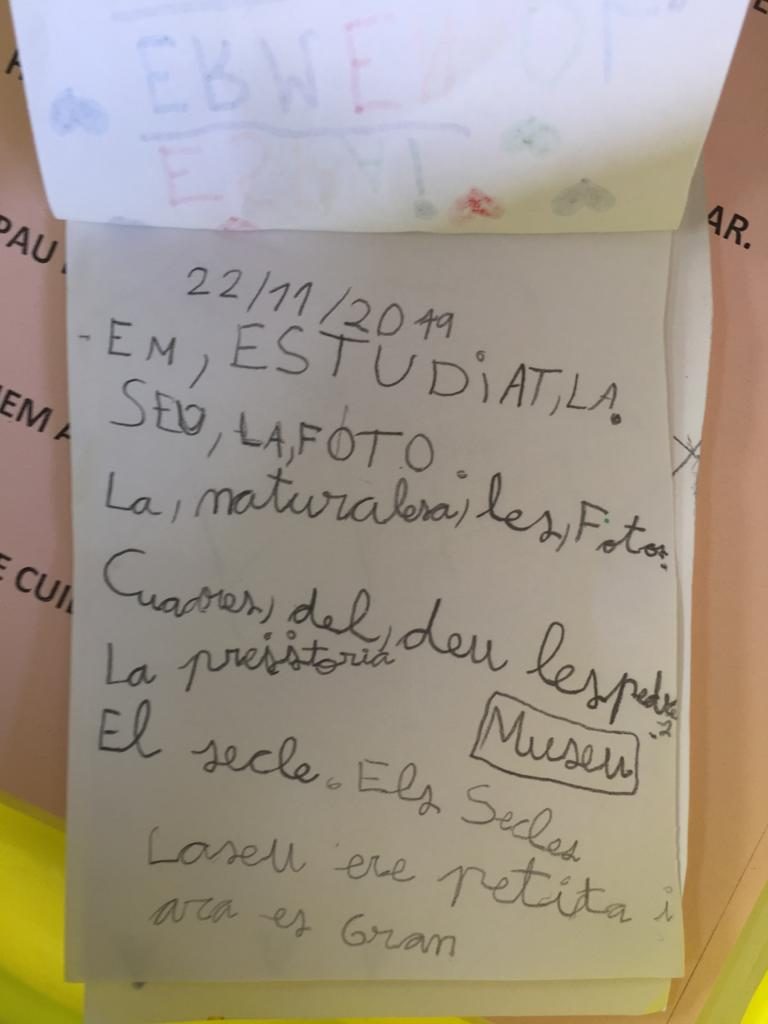 PAU
AR.
22/11/2019
- EM, ESTUDiAT, LA.
SEU, LA, FOTO.
La, naturalesa, les, Fotos.
Cuadres, del, deu les pedres
La presistoria
Museu
El secle. Els Secles
Laseu ere petita i
ara es Gran